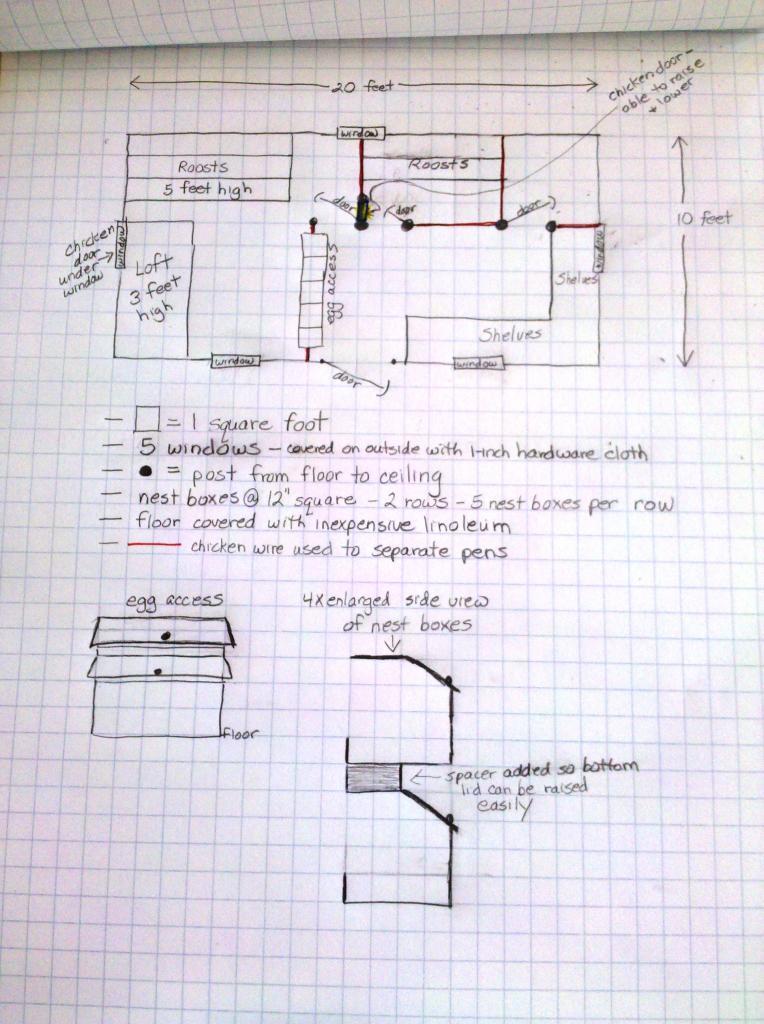 20 feet
chicken door-
able to raise
+ lower
window
Roosts
5 feet high
Roosts
door
door
door
10 feet
chicken
door
under
window
window
Loft
3 feet
high
egg access
window
Shelves
Shelves
window
door
window
— = 1 square foot
— 5 windows - covered on outside with 1-inch hardware cloth
— ● = post from floor to ceiling
— nest boxes @ 12" square - 2 rows - 5 nest boxes per row
— floor covered with inexpensive linoleum
— chicken wire used to separate pens
egg access
floor
4x enlarged side view
of nest boxes
spacer added so bottom
lid can be raised
easily